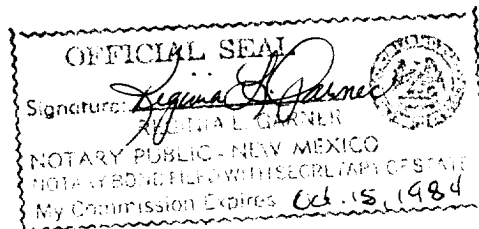 OFFICIAL SEAL
Signature: Regina L. Garner
REGINA L. GARNER
NOTARY PUBLIC - NEW MEXICO
NOTARY BOND FILED WITH SECRETARY OF STATE
My Commission Expires Oct. 15, 1984